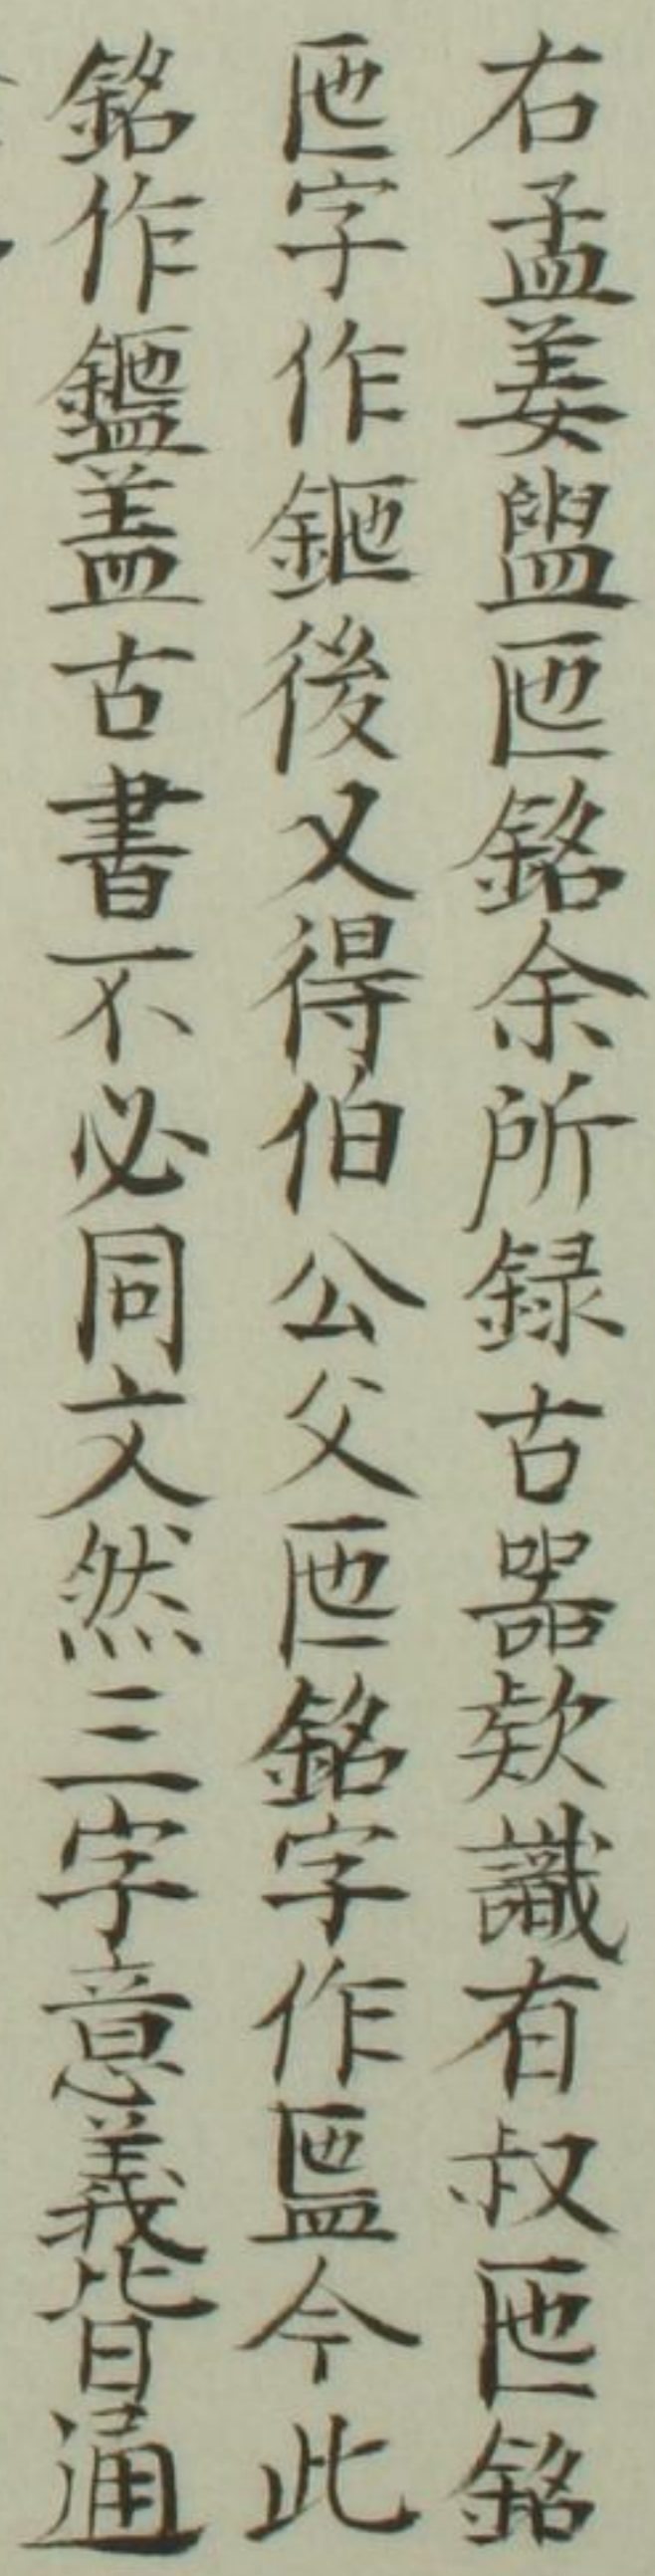 右孟姜盥匜銘余所録古器欵識有叔匜銘
匜字作後又得伯公父匜銘字作今此
銘作盖古書不必同文然三字意義皆通